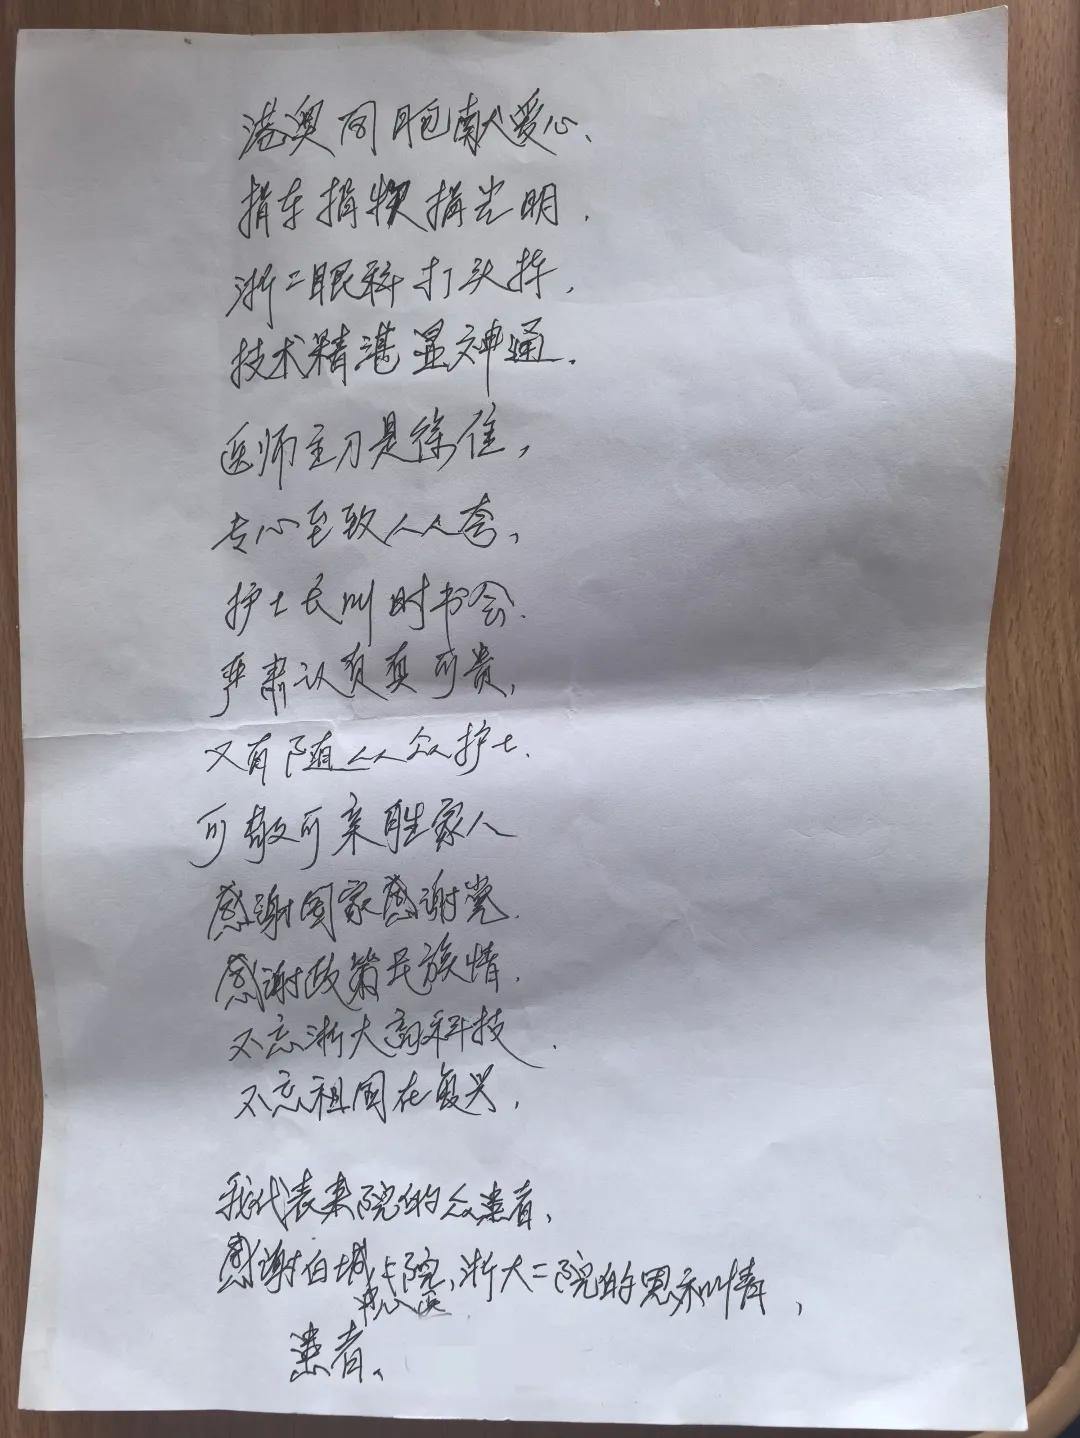 港澳同胞献爱心、
捐车捐物捐光明.
浙二眼科打头阵,
技术精湛显神通.
医师主刀是徐佳,
专心至致人人夸,
护士长叫时书会.
严肃认真可贵,
又有随从众护士.
可敬可亲胜家人
感谢国家感谢党.
感谢政策民族情.
不忘浙大高科技.
不忘祖国在复兴,
我代表来院的众患者,
感谢白城中心医院、浙大二院的恩和情,
患者、